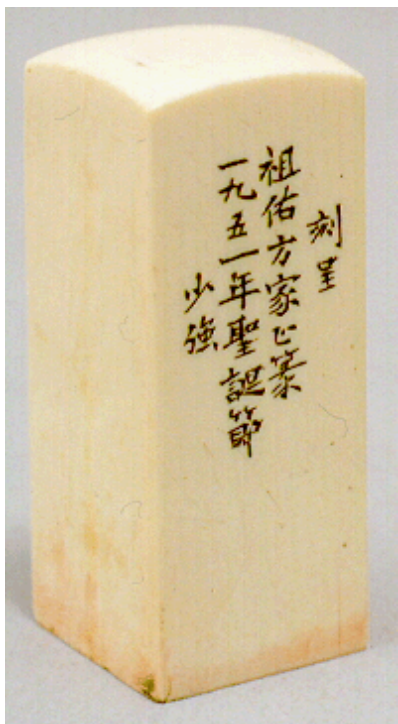 刻呈
祖佑方家正篆
一九五一年聖誔節
少強